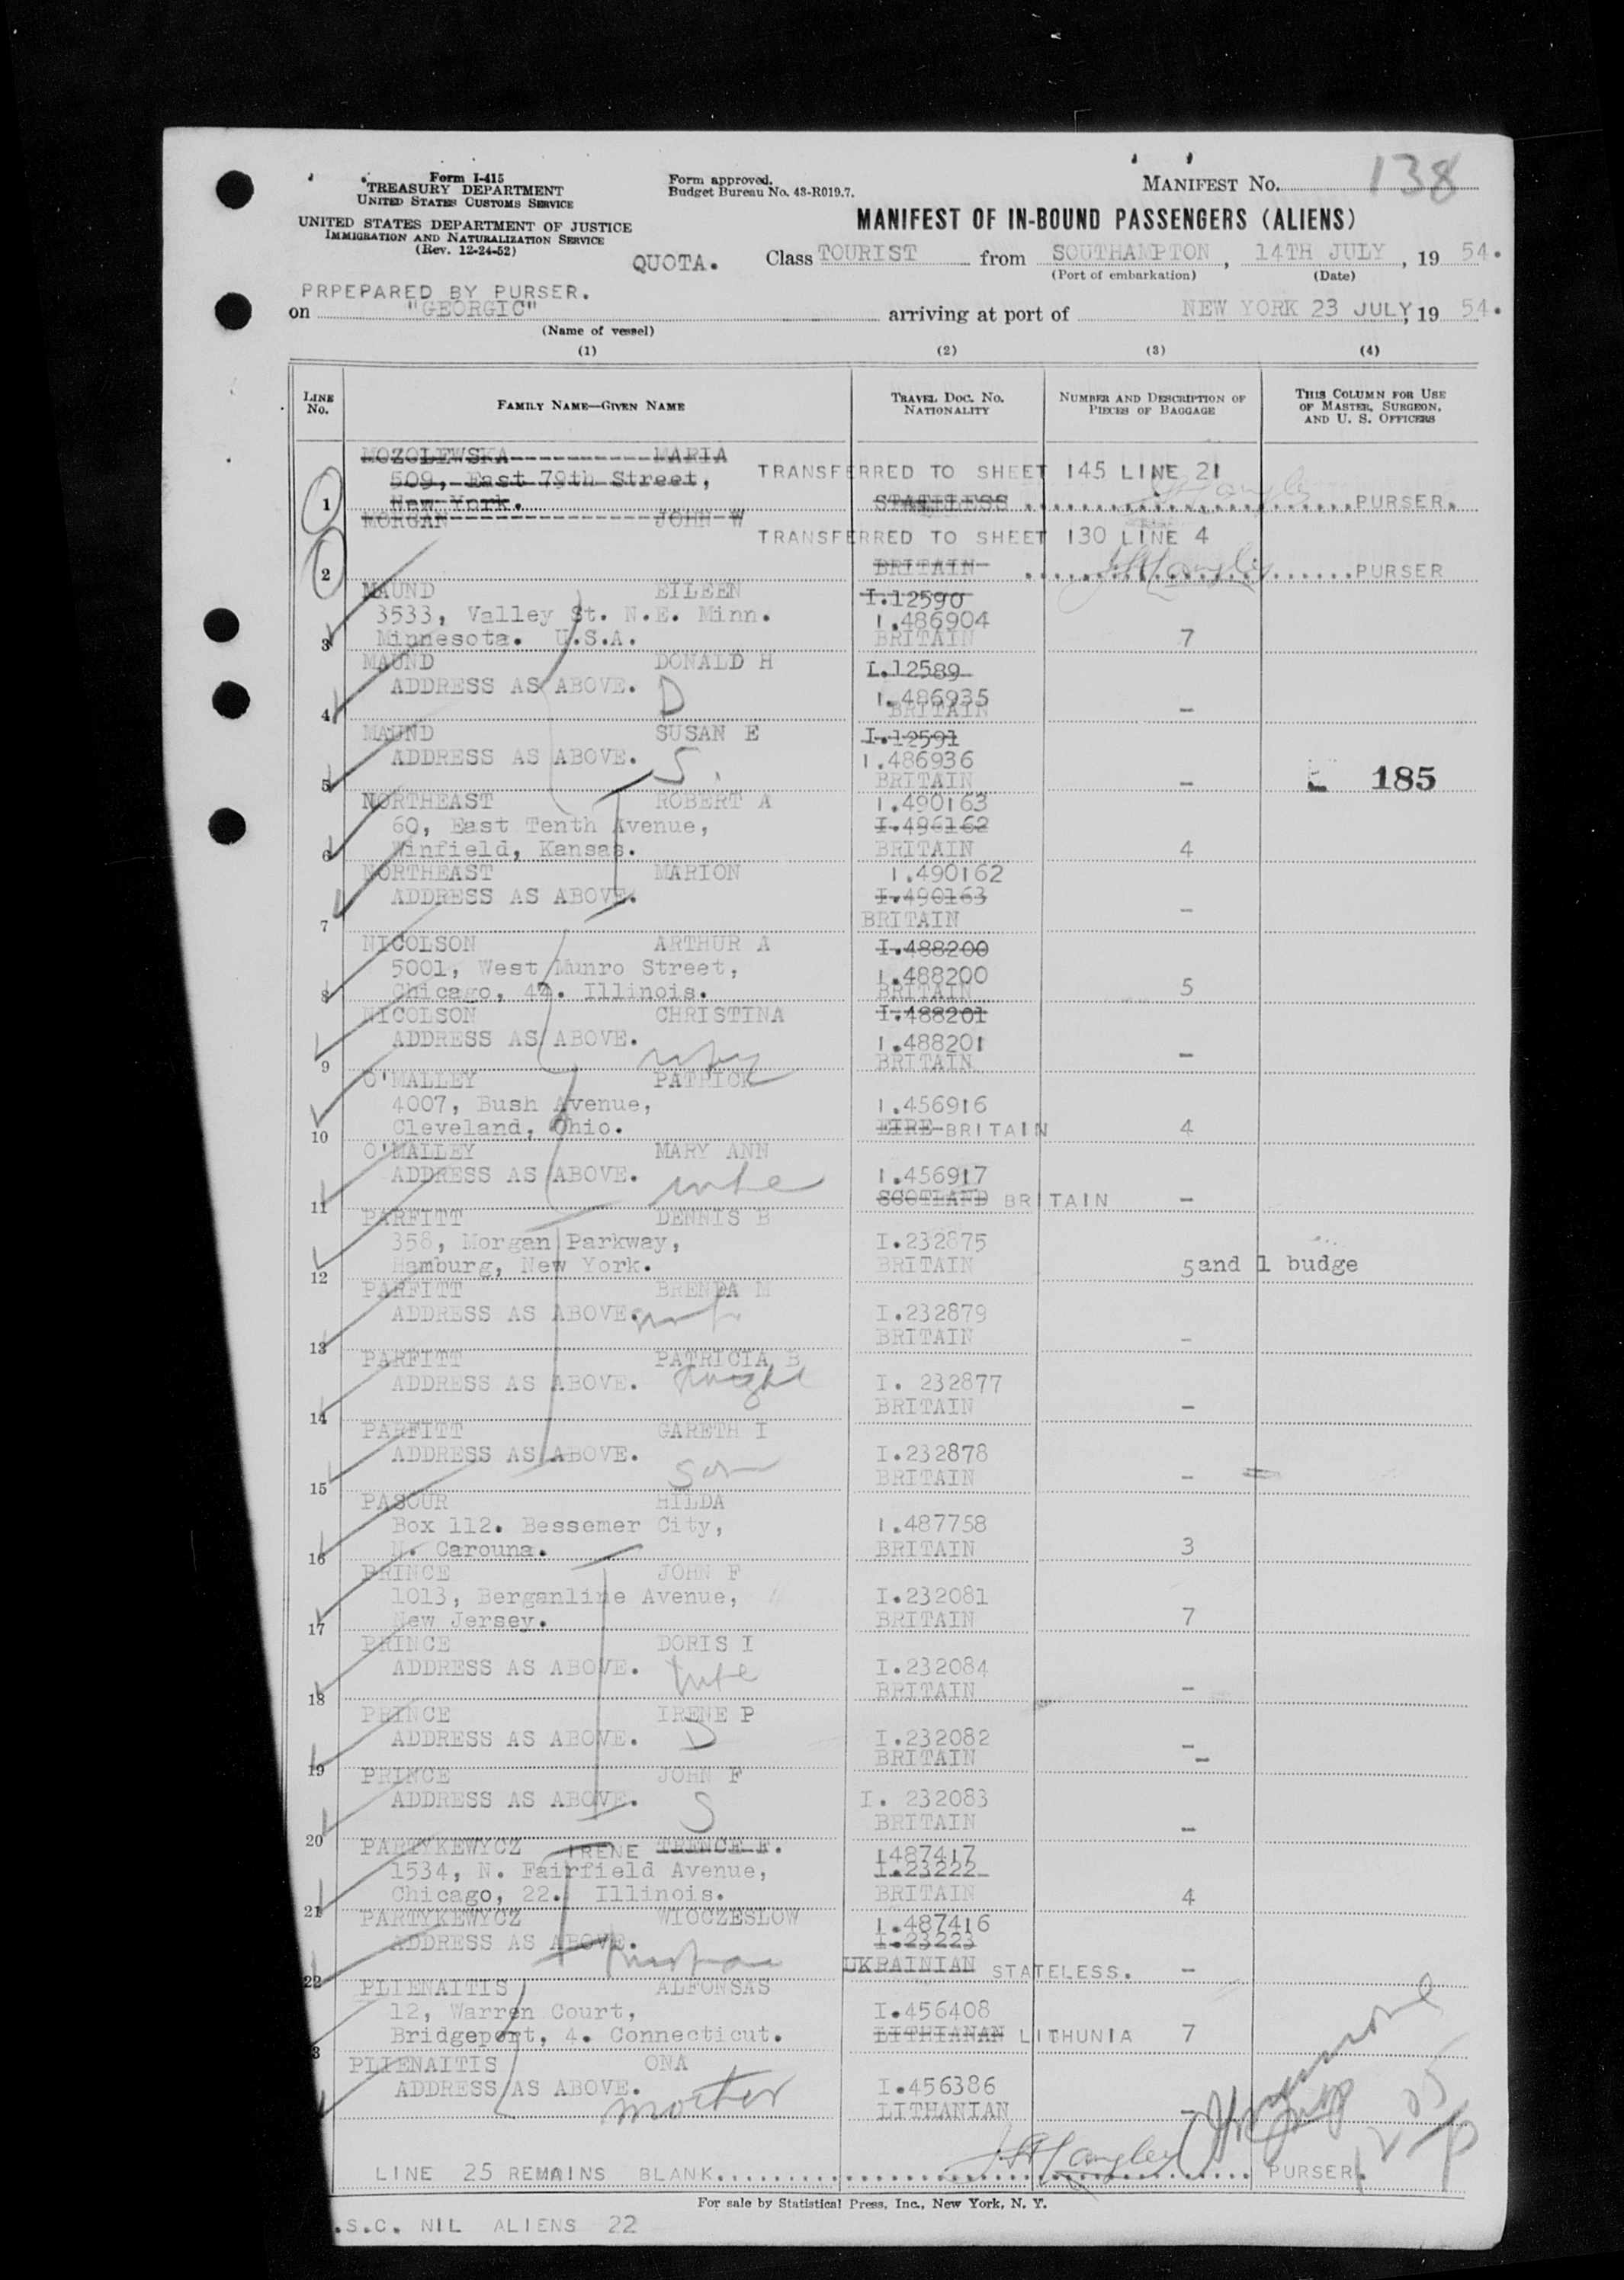 Form I-415
TREASURY DEPARTMENT
UNITED STATES CUSTOMS SERVICE
UNITED STATES DEPARTMENT OF JUSTICE
IMMIGRATION AND NATURALIZATION SERVICE
(Rev. 12-24-52)
Form approved.
Budget Bureau No. 43-R019.7.
MANIFEST No. 138
MANIFEST OF IN-BOUND PASSENGERS (ALIENS)
QUOTA. Class TOURIST from SOUTHAMPTON, 14TH JULY, 19 54.
(Port of embarkation) (Date)
PRPEPARED BY PURSER.
on "GEORGIC" arriving at port of NEW YORK 23 JULY, 19 54.
(Name of vessel)
(1) (2) (3) (4)
LINE No. FAMILY NAME—GIVEN NAME TRAVEL DOC. No. NATIONALITY NUMBER AND DESCRIPTION OF PIECES OF BAGGAGE THIS COLUMN FOR USE OF MASTER, SURGEON, AND U. S. OFFICERS
MOZOLEWSKA----------MARIA
TRANSFERRED TO SHEET 145 LINE 21
509, East 79th Street,
1 New York. STATELESS PURSER.
MORGAN---------------JOHN W
TRANSFERRED TO SHEET 130 LINE 4
2 BRITAIN PURSER
MAUND EILEEN I.12590
3533, Valley St. N.E. Minn. 1.486904
3 Minnesota. U.S.A. BRITAIN 7
MAUND DONALD H I.12589
ADDRESS AS ABOVE. D 1.486935
4 BRITAIN -
MAUND SUSAN E I.12591
ADDRESS AS ABOVE. S. 1.486936
5 BRITAIN - 185
NORTHEAST ROBERT A 1.490163
60, East Tenth Avenue, I.496162
6 Winfield, Kansas. BRITAIN 4
NORTHEAST MARION 1.490162
ADDRESS AS ABOVE. I.490163
7 BRITAIN -
NICOLSON ARTHUR A I.488200
5001, West Munro Street, 1.488200
8 Chicago, 44. Illinois. BRITAIN 5
NICOLSON CHRISTINA I.488201
ADDRESS AS ABOVE. 1.488201
9 wife BRITAIN -
O'MALLEY PATRICK
4007, Bush Avenue, 1.456916
10 Cleveland, Ohio. EIRE-BRITAIN 4
O'MALLEY MARY ANN
ADDRESS AS ABOVE. wife 1.456917
11 SCOTLAND BRITAIN -
PARFITT DENNIS B
358, Morgan Parkway, I.232875
12 Hamburg, New York. BRITAIN 5 and 1 budge
PARFITT BRENDA M
ADDRESS AS ABOVE. wife I.232879
13 BRITAIN -
PARFITT PATRICIA B
ADDRESS AS ABOVE. I. 232877
14 BRITAIN -
PARFITT GARETH I
ADDRESS AS ABOVE. I.232878
15 son BRITAIN -
PASOUR HILDA
Box 112. Bessemer City, 1.487758
16 N. Carouna. BRITAIN 3
PRINCE JOHN F
1013, Berganline Avenue, I.232081
17 New Jersey. BRITAIN 7
PRINCE DORIS I
ADDRESS AS ABOVE. wife I.232084
18 BRITAIN -
PRINCE IRENE P
ADDRESS AS ABOVE. D I.232082
19 BRITAIN -
PRINCE JOHN F
ADDRESS AS ABOVE. S I. 232083
20 BRITAIN -
PARTYKEWYCZ IRENE TRENCE F. 1487417
1534, N. Fairfield Avenue, I.23222
21 Chicago, 22. Illinois. BRITAIN 4
PARTYKEWYCZ WIOCZESLOW 1.487416
ADDRESS AS ABOVE. I.23223
22 UKRAINIAN STATELESS. -
PLIENAITIS ALFONSAS
12, Warren Court, I.456408
3 Bridgeport, 4. Connecticut. LITHIANAN LITHUNIA 7
PLIENAITIS ONA
ADDRESS AS ABOVE. mother I.456386
LITHANIAN -
LINE 25 REMAINS BLANK. PURSER.
For sale by Statistical Press, Inc., New York, N. Y.
.S.C. NIL ALIENS 22